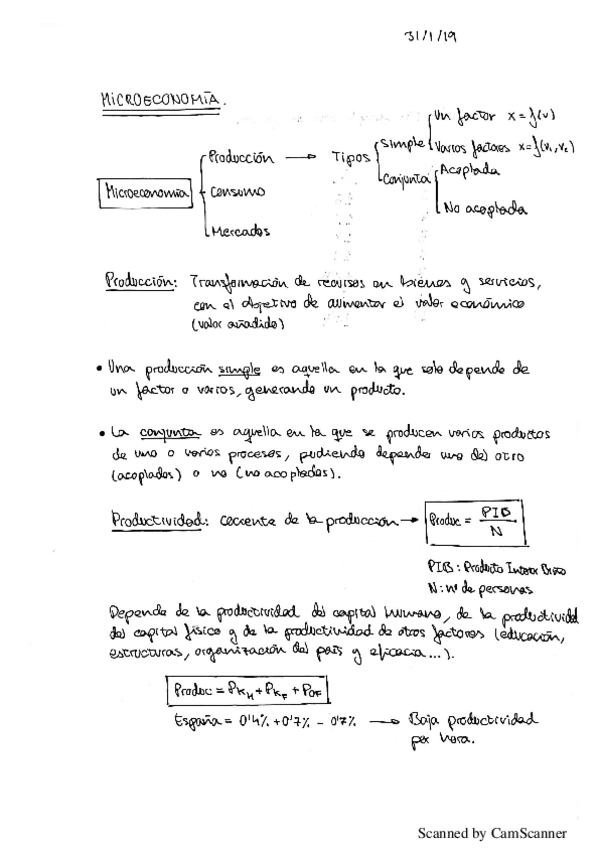 31/1/19
MICROECONOMÍA.
Un factor x = f(v)
Simple
Varios factores x=f(v₁,v₂)
Producción → Tipos
Conjunta
Acoplada
Microeconomía
Consumo
No acoplada
Mercados
Producción: Transformación de recursos en bienes y servicios,
con el objetivo de aumentar el valor económico
(valor añadido)
• Una producción simple es aquella en la que solo depende de
un factor o varios, generando un producto.
• La conjunta es aquella en la que se producen varios productos
de uno o varios procesos, pudiendo depender uno del otro
(acoplados) o no (no acoplados).
Productividad: cociente de la producción → Produc = PIB / N
PIB: Producto Interior Bruto
N: nº de personas
Depende de la productividad del capital humano, de la productividad
del capital físico y de la productividad de otros factores (educación,
estructuras, organización del país y eficacia...).
Produc = P_KH + P_KF + P_OF
España = 0'4% + 0'7% - 0'7% → Baja productividad
por hora.
Scanned by CamScanner